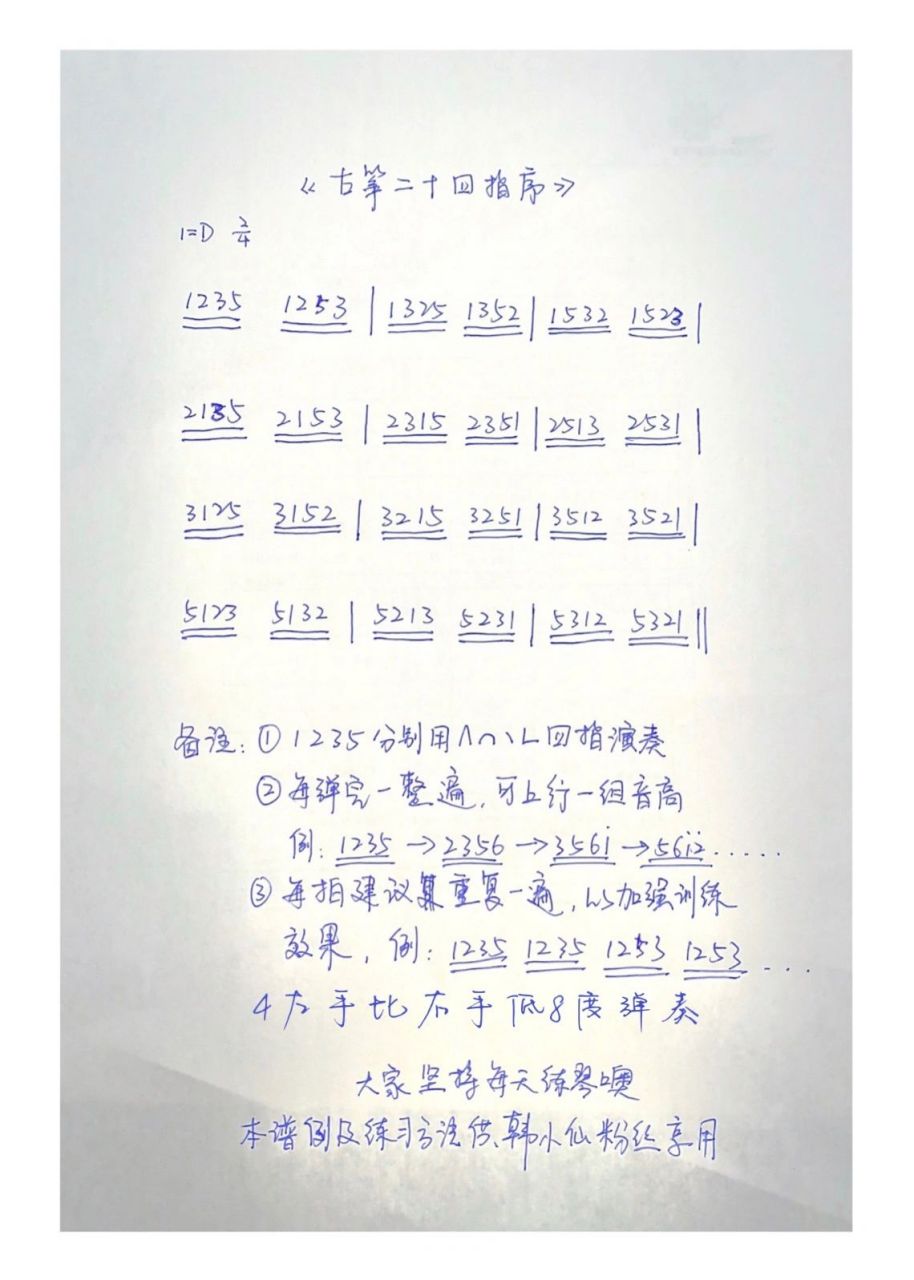 《古筝二十四指序》
1=D 2/4
1235 1253 | 1325 1352 | 1532 1523 |
2135 2153 | 2315 2351 | 2513 2531 |
3125 3152 | 3215 3251 | 3512 3521 |
5123 5132 | 5213 5231 | 5312 5321 ||
备注:①1235分别用∧⌒、∟四指演奏
②每弹完一整遍,升上行一组音高
例:1235→2356→356i→56i2̇.....
③每拍建议重复一遍,以加强训练
效果,例:1235 1235 1253 1253...
4左手比右手低8度弹奏
大家坚持每天练琴噢
本谱例及练习方法供韩小仙粉丝享用